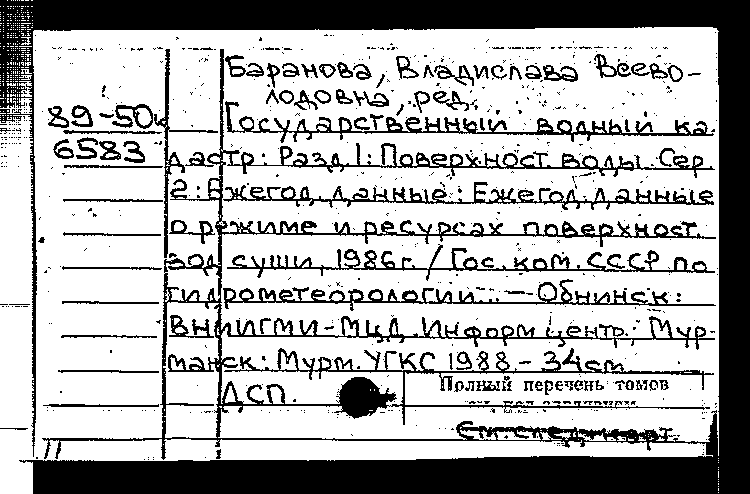 Баранова, Владислава Всево-
лодовна, ред.
89-50к
Государственный водный ка-
6583
дастр: Разд. 1: Поверхност. воды. Сер.
2: Ежегод. данные: Ежегод. данные
о режиме и ресурсах поверхност.
вод суши, 1986г. / Гос. ком. СССР по
гидрометеорологии... — Обнинск:
ВНИИГМИ-МЦД. Информ центр.; Мур-
манск: Мурм. УГКС 1988 - 34см
ДСП.
Полный перечень томов
см. под заглавием
См. след. карт.
11